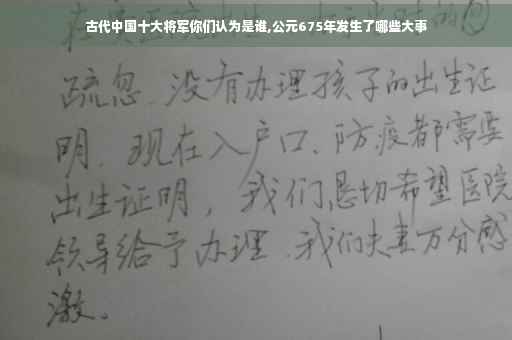 古代中国十大将军你们认为是谁,公元675年发生了哪些大事
疏忽、没有办理孩子的出生证
明、现在入户口、防疫都需要
出生证明，我们恳切希望医院
领导给予办理、我们夫妻万分感
激。